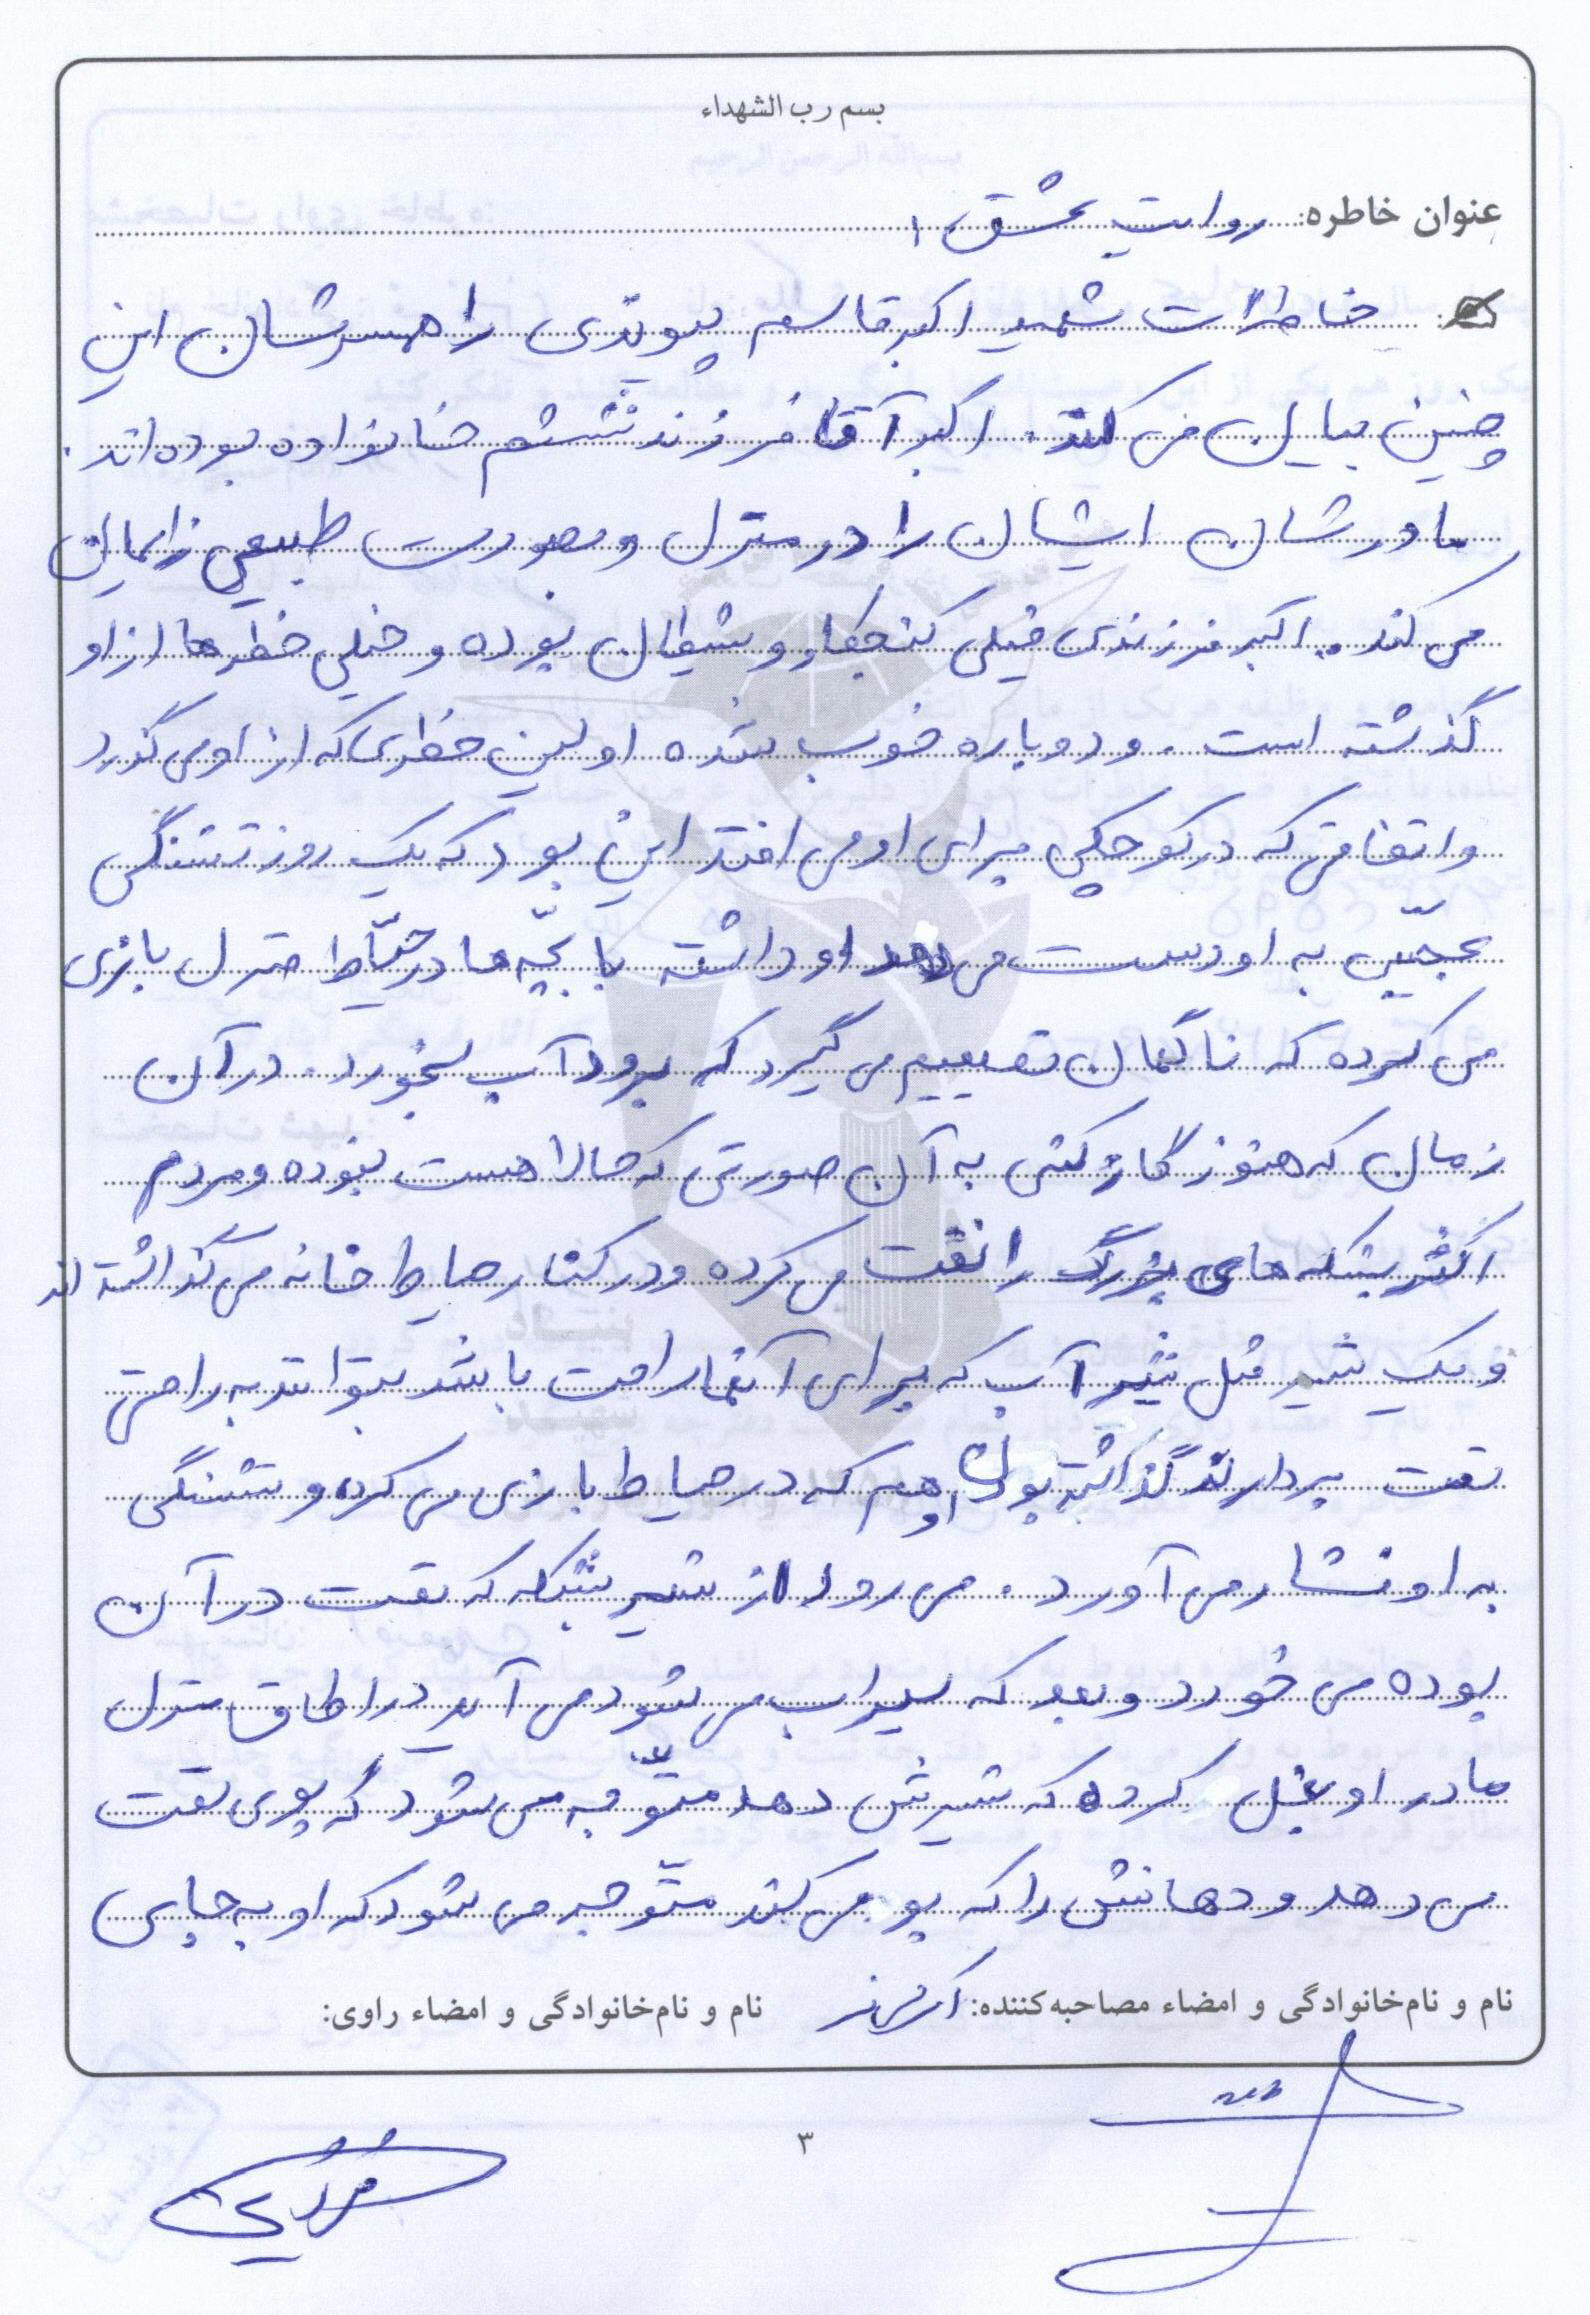 بسم رب الشهداء
عنوان خاطره: روایت عشق ۱
خاطرات شهید اکبر قاسم پیوندی را همسرشان این
چنین بیان می کند. اکبر آقا فرزند ششم خانواده بوده اند.
مادرشان ایشان را در منزل و بصورت طبیعی زایمان
می کند. اکبر فرزندی خیلی کنجکاو و شیطان بوده و خیلی خطرها از او
گذشته است. و دوباره خوب شده اولین خطری که از او می گذرد
و اتفاقی که در کوچکی برای او می افتد این بود که یک روز تشنگی
عجیبی به او دست می دهد او داشته با بچّه ها در حیّاط منزل بازی
می کرده که ناگهان تصمیم می گیرد که برود آب بخورد. در آن
زمان که هنوز گازکشی به آن صورتی که حالا هست نبوده و مردم
اکثر بشکه های بزرگ را نفت می کرده و در کنار حیاط خانه می گذاشته اند
و یک شیر مثل شیر آب که برای آنها راحت باشد بتوانند به راحتی
نفت بردارند گذاشته بودن او هم که در حیاط بازی می کرد و تشنگی
به او فشار می آورد. می رود از شیر بشکه که نفت در آن
بوده می خورد و بعد که سیراب می شود می آید در اطاق منزل
مادر او بغل کرده که شیرش دهد متوّجه می شود که بوی نفت
می دهد و دهانش را که بو می کند متوّجه می شود که او به جای
نام و نام‌خانوادگی و امضاء مصاحبه‌کننده:
نام و نام‌خانوادگی و امضاء راوی:
۳